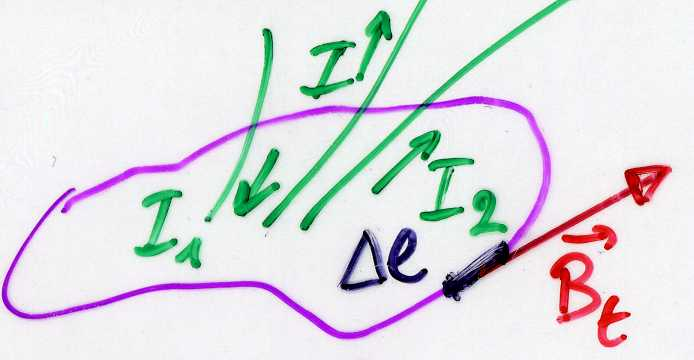 I
I₁
I₂
Δl
B⃗ₜ